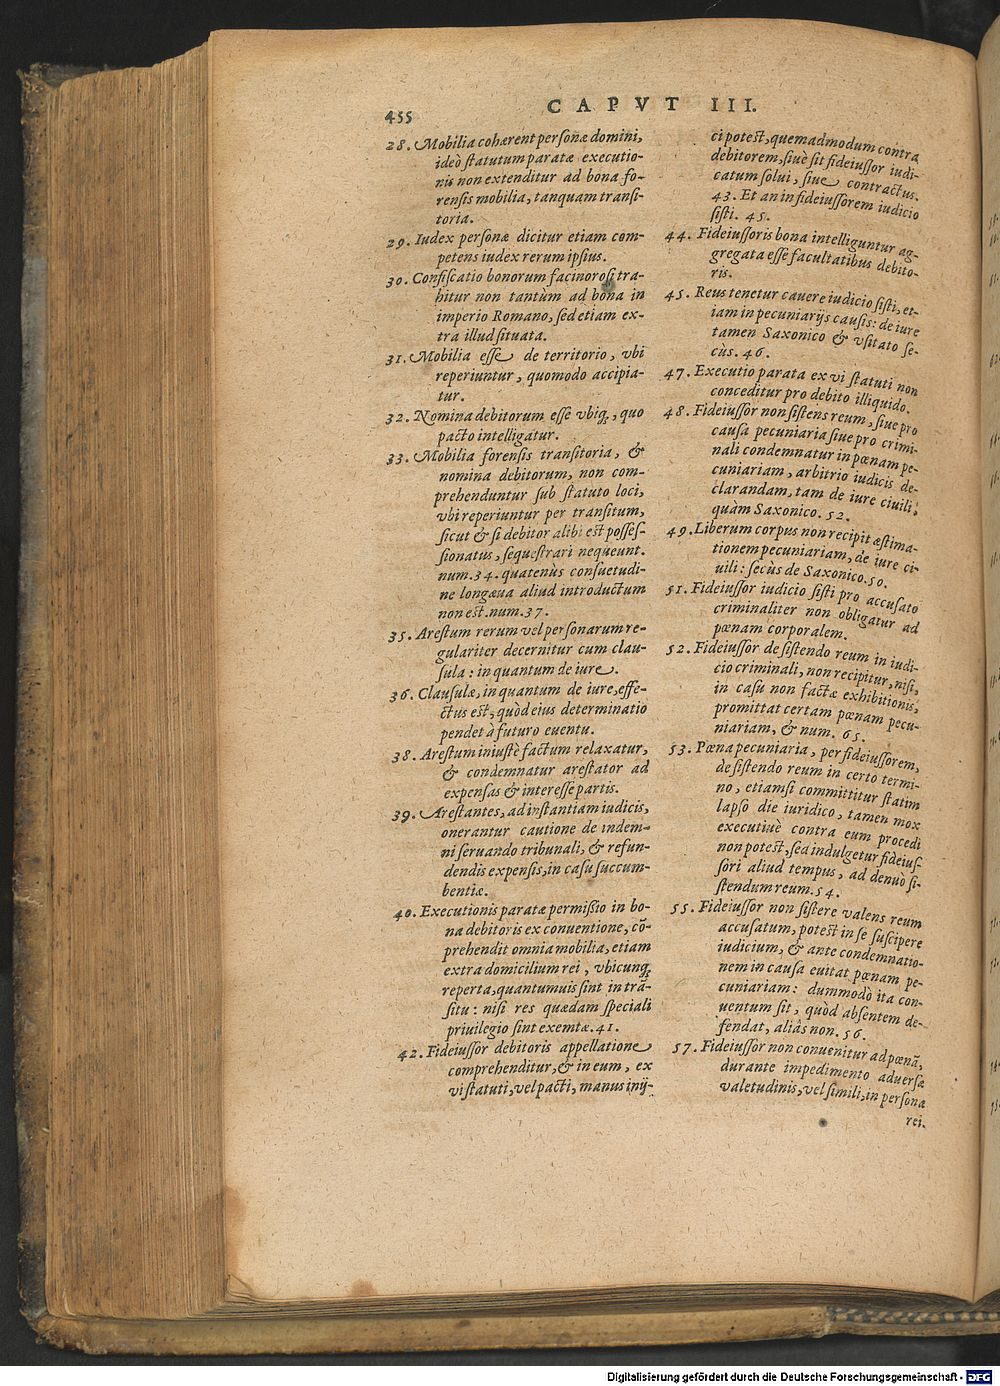 455
CAPVT III.
28. Mobilia cohærent personæ domini,
ideò statutum paratæ executio-
nis non extenditur ad bona fo-
rensis mobilia, tanquam transi-
toria.
29. Iudex personæ dicitur etiam com-
petens iudex rerum ipsius.
30. Confiscatio bonorum facinorosi tra-
hitur non tantùm ad bona in
imperio Romano, sed etiam ex-
tra illud situata.
31. Mobilia esse de territorio, vbi
reperiuntur, quomodo accipia-
tur.
32. Nomina debitorum esse vbiq;, quo
pacto intelligatur.
33. Mobilia forensis transitoria, &
nomina debitorum, non com-
prehenduntur sub statuto loci,
vbi reperiuntur per transitum,
sicut & si debitor alibi est posses-
sionatus, sequestrari nequeunt.
num. 34. quatenùs consuetudi-
ne longæua aliud introductum
non est. num. 37.
35. Arestum rerum vel personarum re-
gulariter decernitur cum clau-
sula: in quantum de iure.
36. Clausulæ, in quantum de iure, effe-
ctus est, quòd eius determinatio
pendet à futuro euentu.
38. Arestum iniustè factum relaxatur,
& condemnatur arestator ad
expensas & interesse partis.
39. Arestantes, ad instantiam iudicis,
onerantur cautione de indem-
ni seruando tribunali, & refun-
dendis expensis, in casu succum-
bentiæ.
40. Executionis paratæ permißio in bo-
na debitoris ex conuentione, cō-
prehendit omnia mobilia, etiam
extra domicilium rei, vbicunq;
reperta, quantumuis sint in trā-
situ: nisi res quædam speciali
priuilegio sint exemtæ. 41.
42. Fideiussor debitoris appellatione
comprehenditur, & in eum, ex
vi statuti, vel pacti, manus inij-
ci potest, quemadmodum contra
debitorem, siuè sit fideiussor iudi-
catum solui, siue contractus.
43. Et an in fideiussorem iudicio
sisti. 45.
44. Fideiussoris bona intelliguntur ag-
gregata esse facultatibus debito-
ris.
45. Reus tenetur cauere iudicio sisti, et-
iam in pecuniarijs causis: de iure
tamen Saxonico & vsitato se-
cùs. 46.
47. Executio parata ex vi statuti non
conceditur pro debito illiquido.
48. Fideiussor non sistens reum, siue pro
causa pecuniaria siue pro crimi-
nali condemnatur in pœnam pe-
cuniariam, arbitrio iudicis de-
clarandam, tam de iure ciuili,
quàm Saxonico. 52.
49. Liberum corpus non recipit æstima-
tionem pecuniariam, de iure ci-
uili: secùs de Saxonico. 50.
51. Fideiussor iudicio sisti pro accusato
criminaliter non obligatur ad
pœnam corporalem.
52. Fideiussor de sistendo reum in iudi-
cio criminali, non recipitur, nisi,
in casu non factæ exhibitionis,
promittat certam pœnam pecu-
niariam, & num. 65.
53. Pœna pecuniaria, per fideiussorem,
de sistendo reum in certo termi-
no, etiamsi committitur statim
lapso die iuridico, tamen mox
executiuè contra eum procedi
non potest, sed indulgetur fideius-
sori aliud tempus, ad denuò si-
stendum reum. 54.
55. Fideiussor non sistere valens reum
accusatum, potest in se suscipere
iudicium, & ante condemnatio-
nem in causa euitat pœnam pe-
cuniariam: dummodò ita con-
uentum sit, quòd absentem de-
fendat, aliâs non. 56.
57. Fideiussor non conuenitur ad pœnā,
durante impedimento aduersæ
valetudinis, vel simili, in persona
rei.
Digitalisierung gefördert durch die Deutsche Forschungsgemeinschaft - DFG